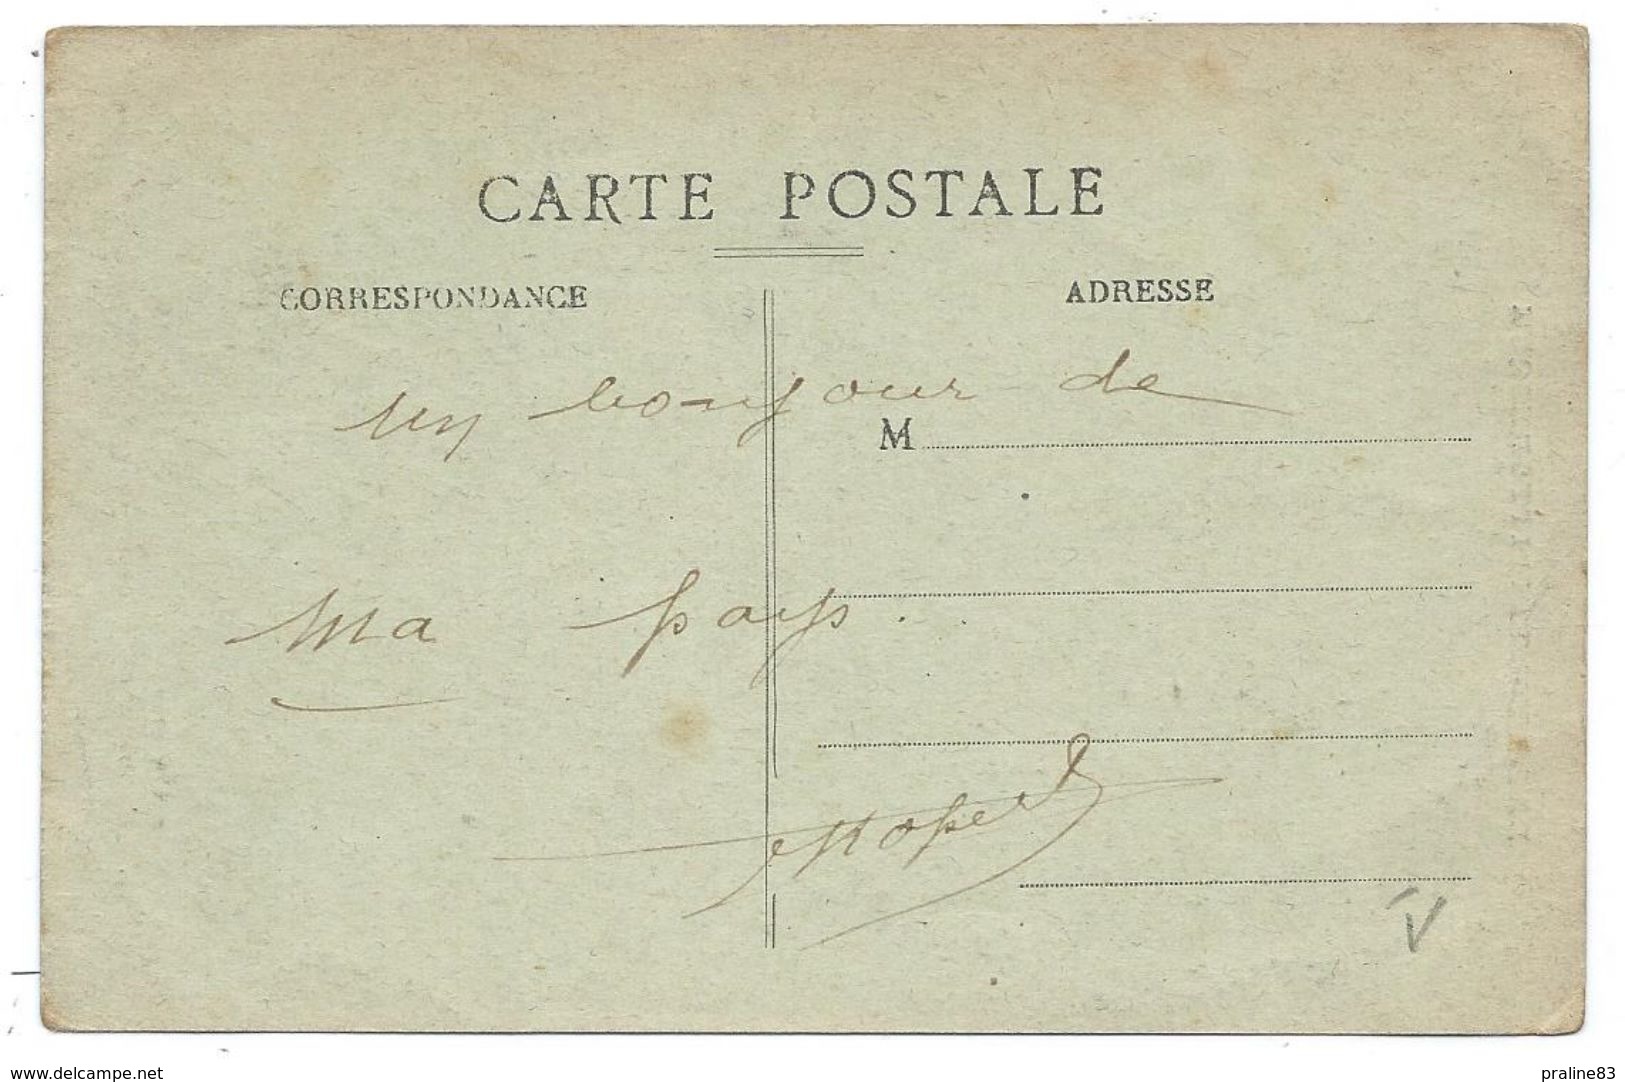 CARTE POSTALE
CORRESPONDANCE
ADRESSE
un bonjour de
M
Ma pays.
V
www.delcampe.net
praline83